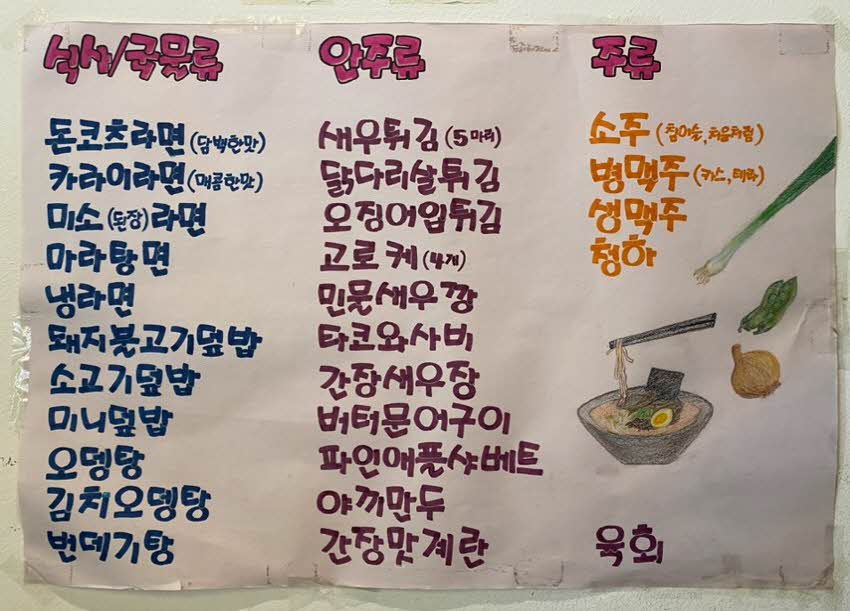 식사/국물류
돈코츠라면 (담백한맛)
카라이라면 (매콤한맛)
미소 (된장) 라면
마라탕면
냉라면
돼지불고기덮밥
소고기덮밥
미니덮밥
오뎅탕
김치오뎅탕
번데기탕
안주류
새우튀김 (5마리)
닭다리살튀김
오징어입튀김
고로케 (4개)
민물새우깡
타코와사비
간장새우장
버터문어구이
파인애플샤베트
야끼만두
간장맛계란
주류
소주 (참이슬, 처음처럼)
병맥주 (카스, 테라)
생맥주
청하
육회